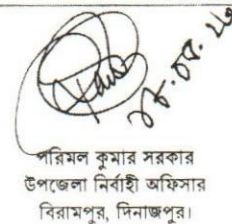 পরিমল কুমার সরকার
উপজেলা নির্বাহী অফিসার
বিরামপুর, দিনাজপুর।